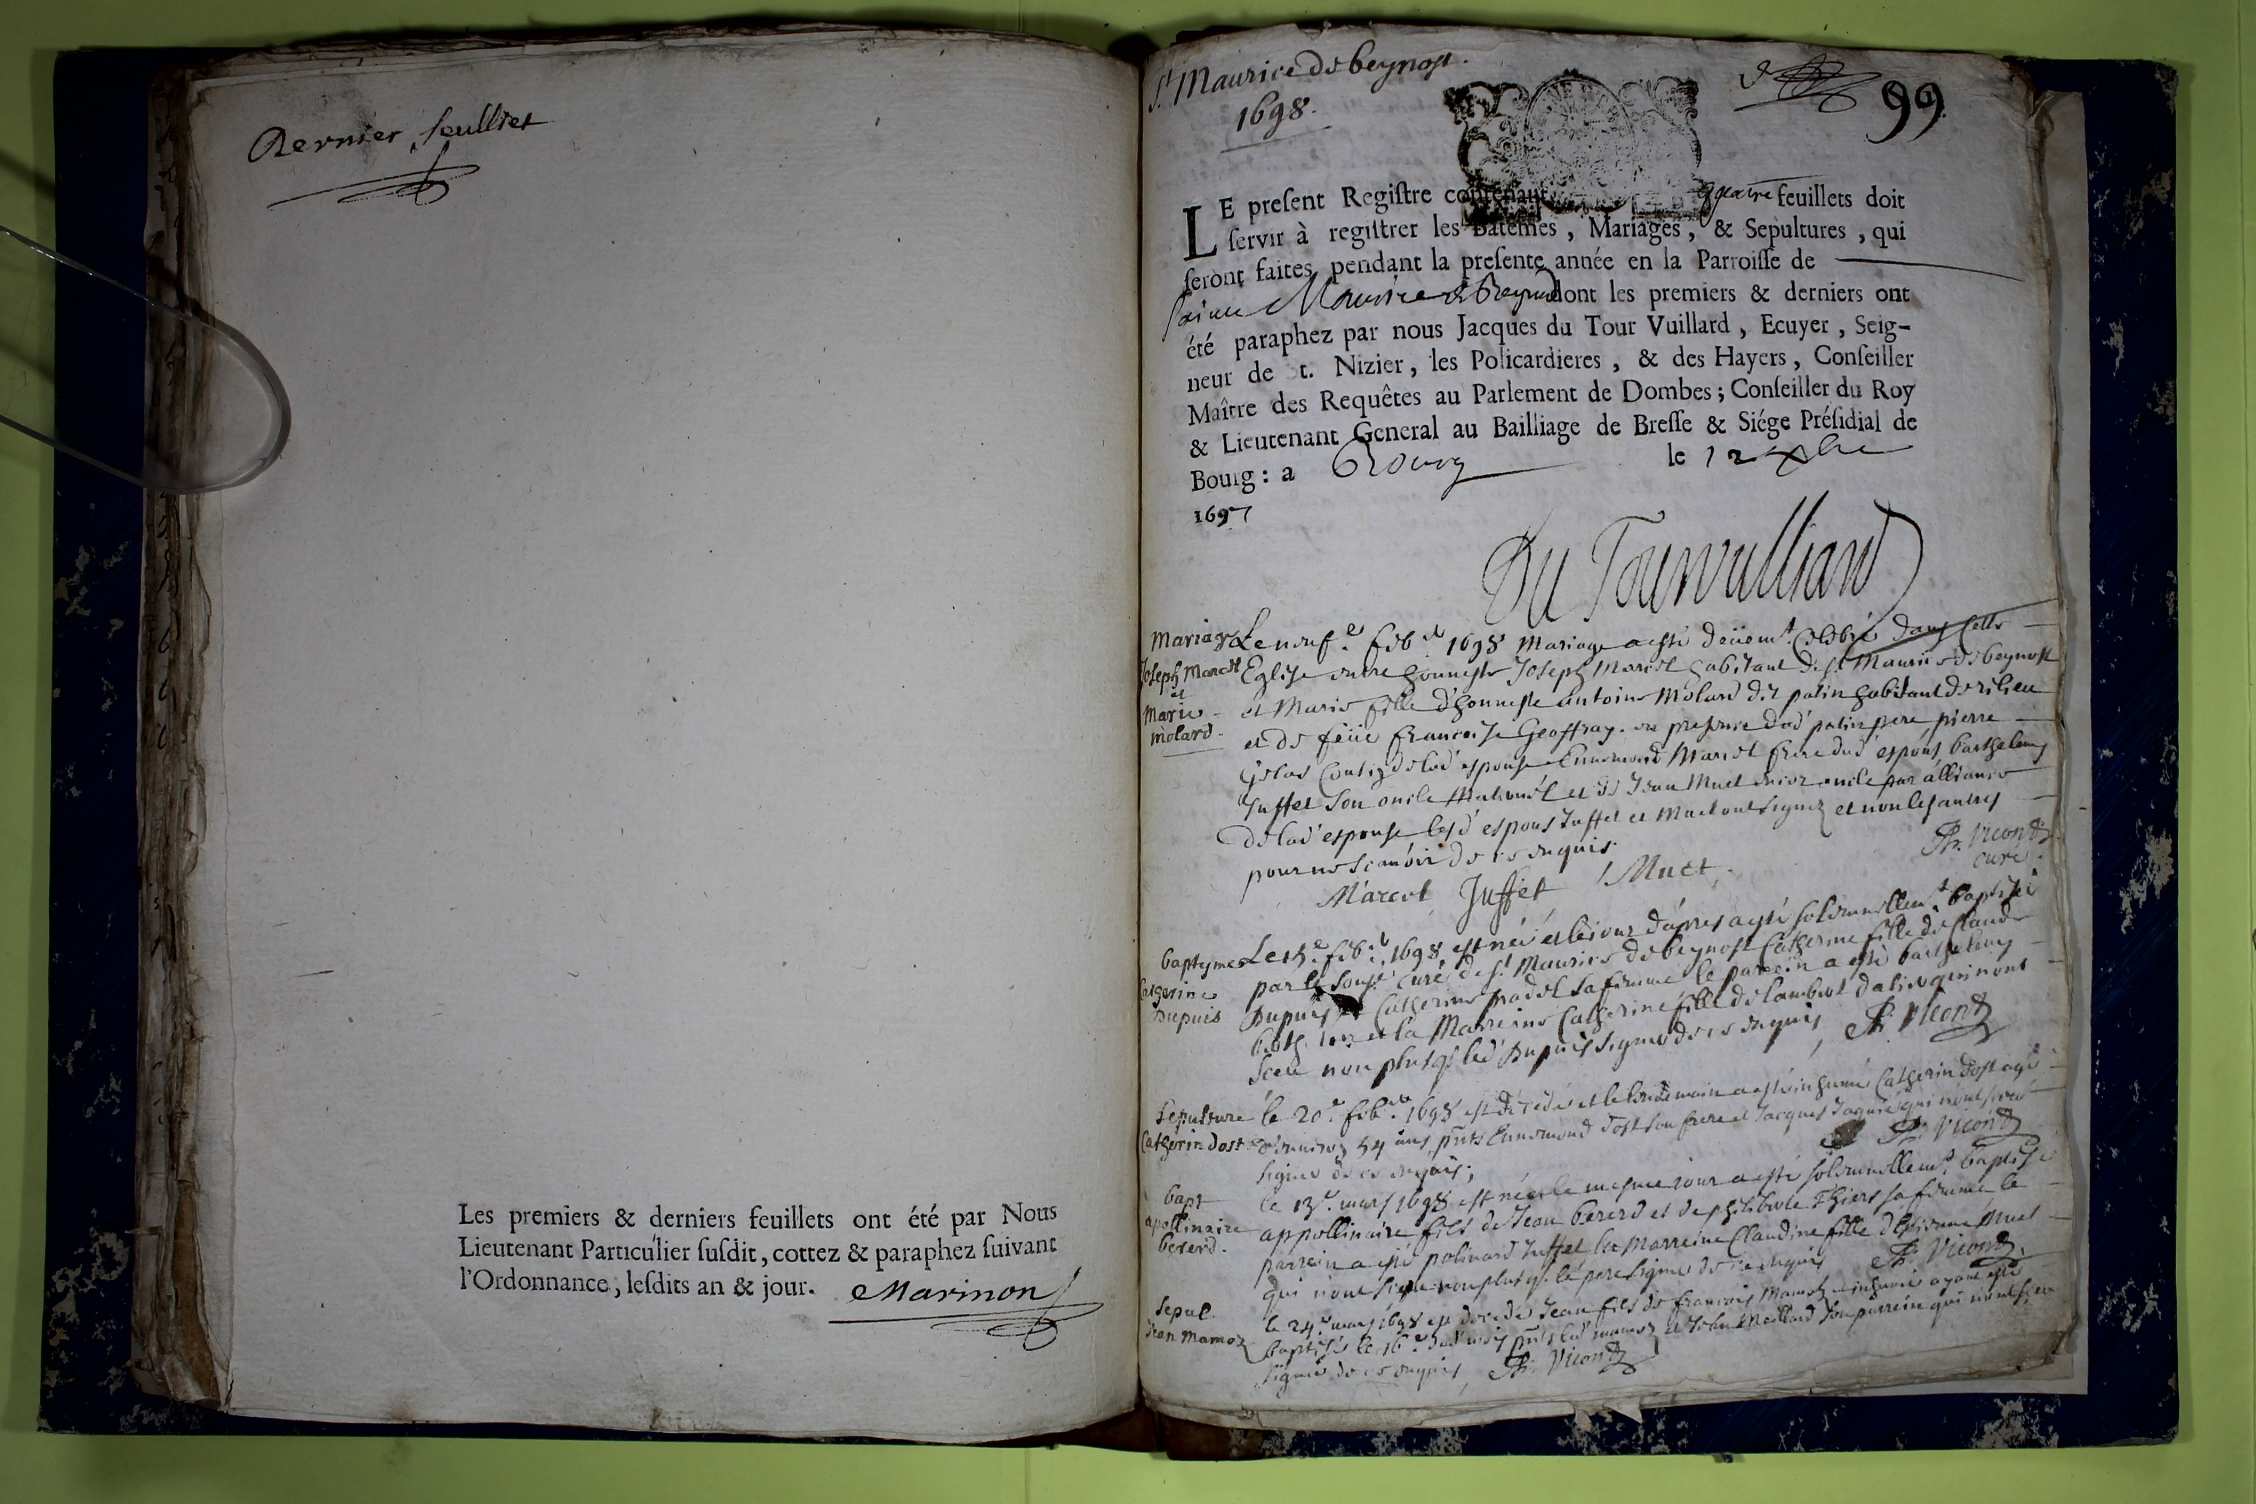 Dernier feulliet
Les premiers & derniers feuillets ont été par Nous
Lieutenant Particulier ſuſdit, cottez & paraphez ſuivant
l'Ordonnance, leſdits an & jour. Marinon
St Maurice de beynost.
1698.
99
LE preſent Regiſtre contenant quatre feuillets doit
ſervir à regiſtrer les Batêmes, Mariages, & Sepultures, qui
ſeront faites pendant la preſente année en la Parroiſſe de
Saint Maurice de Beynost dont les premiers & derniers ont
été paraphez par nous Jacques du Tour Vuillard, Ecuyer, Seig-
neur de St. Nizier, les Policardieres, & des Hayers, Conſeiller
Maître des Requêtes au Parlement de Dombes; Conſeiller du Roy
& Lieutenant General au Bailliage de Breſſe & Siége Préſidial de
Bourg: a Bourg le 12 xbre
1697
Du Tourvulliard
Mariage
Joseph Marcel
et
Marie
Molard.
Le neuf.e feb.er 1698 Mariage a esté deüem.t Celebré dans cette
Eglise entre honneste Joseph Marcel habitant de St Maurice de beynost
et Marie fille d'honneste antoine Molard dit patin habitant de rilieu
et de feüe francoise Geoffray. en presence dud' patin pere pierre
Gelas Cousin de lad' espouse Ennemond Marcel frere dud' espous barthelemy
Juffet son oncle Maternel et de Jean Muet oncle par alliance
de lad' espouse lesd' espous Juffet et Muet ont signez et non les autres
pour ne scauoir de ce enquis.
Ph. Vicond
curé.
Marcel Juffet Muet.
baptesme
Catherine
Dupuis
Le 15.e feb.er 1698 est née et le iour d'apres a esté solemnellem.t baptisée
par le sousé curé de St Maurice de beynost Catherine fille de Claude
Dupuis Catherine pradel sa femme le parrein a esté barthelemy
et la Marreine Catherine fille de lambert qui n'ont
sceu non plus q. led' Dupuis signer de ce enquis, Ph. Vicond
Sepulture
Catherin dost
le 20.e feb.er 1698 est decedé et le lendemain a esté inhumé Catherin dost agé
d'enuiron 54 ans pnts Ennemond dost son frere et Jacques qui n'ont sceu
signer de ce enquis; Ph. Vicond
bapt
apollinaire
bererd.
le 13.e mars 1698 est né et le mesme iour a esté solemnellem.t baptisé
appollinaire fils de Jean bererd et de philiberte Thiers sa femme le
parrein a esté polinard Juffet la Marreine Claudine fille d'Estienne Muet
qui n'ont sceu non plus q. le pere signer de ce enquis Ph. Vicond.
Sepul.
Jean Mamoz
le 24.e mars 1698 est decedé Jean fils de francois Mamoz inhumé ayant esté
baptisé le 16.e dud' mois pnts led' mamoz et son parrein qui n'ont sceu
signer de ce enquis, Ph. Vicond